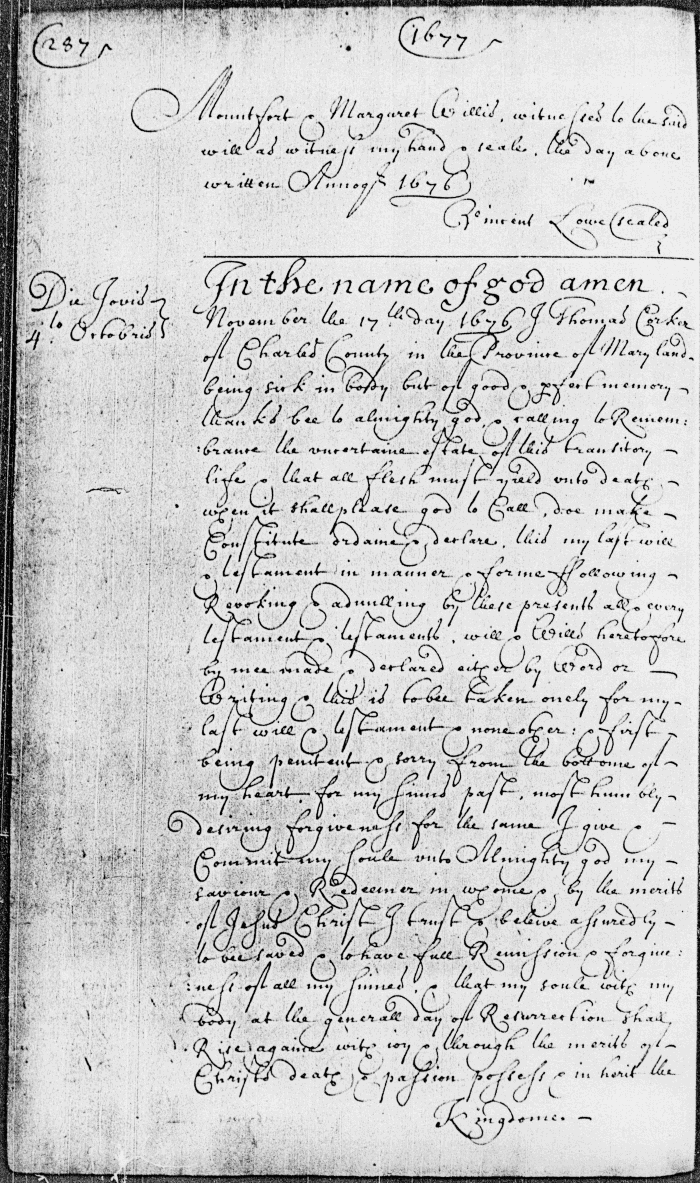 287
1677
Mountfort & Margaret Willis, witnesses to the said
will as witness my hand & seale, the day above
written Annoq 1676
Vincent Lowe (sealed
Die Jovis
4.to Octobris
In the name of god amen.
November the 17th day 1676 I Thomas Corker
of Charles County in the Province of Maryland
being sick in body but of good & pfect memory
thanks bee to almighty god, & calling to Remem:
:brance the uncertaine estate of this transitory
life & that all flesh must yeeld unto death
when it shall please god to Call, doe make
Constitute ordaine & declare, this my last will
& testament in manner & forme ffollowing
Revoking & adnulling by these presents all & every
testament & testaments, will & Wills heretofore
by mee made & declared either by Word or
Writing & this is to bee taken onely for my
last will & testament & none other: & first
being penitent & sorry from the bottome of
my heart for my sinns past, most humbly
desiring forgiveness for the same I give &
Commit my soule unto Almighty god my
saviour & Redeemer in whome & by the merits
of Jesus Christ I trust & beleive assuredly
to bee saved & to have full Remission & forgive:
:ness of all my sinnes, & that my soule with my
body at the generall day of Resurrection shall
Rise againe with joy & through the merits of
Christs death & passion possess & inherit the
Kingdome